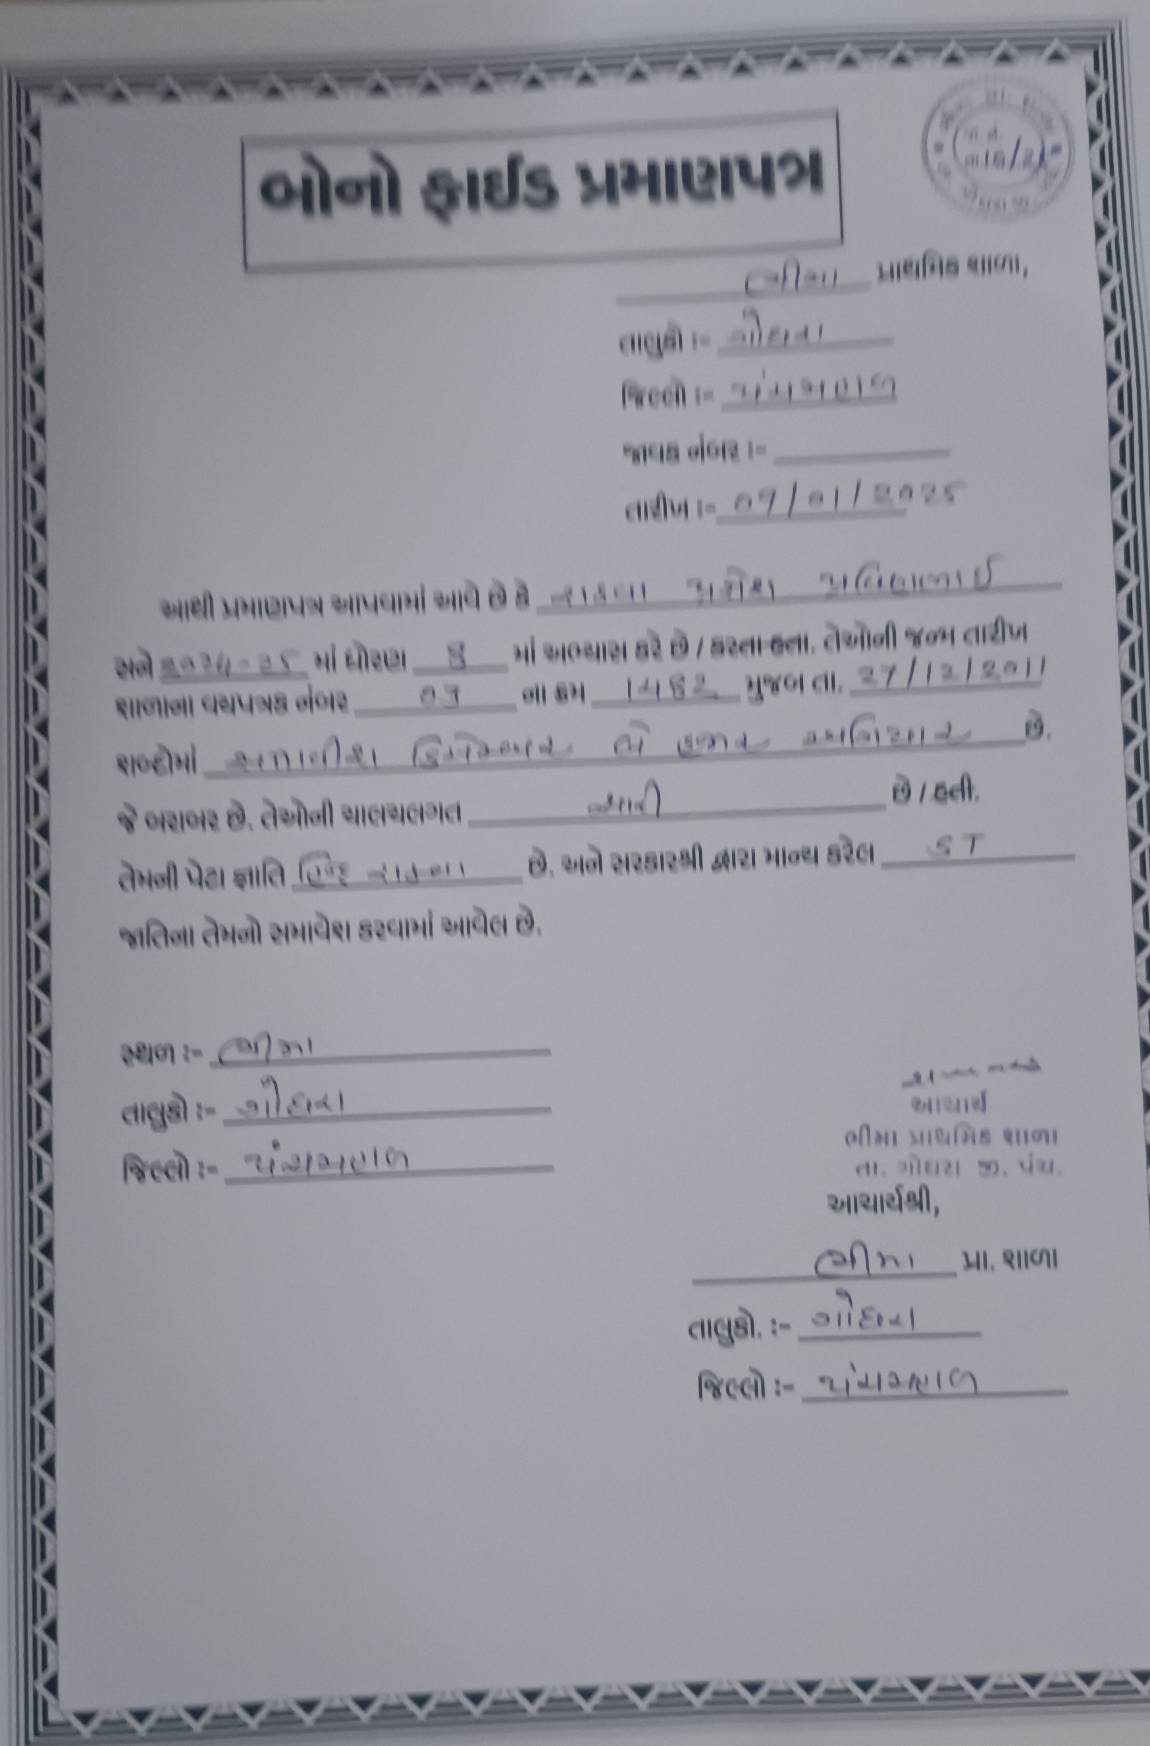 બોનો ફાઈડ પ્રમાણપત્ર
ભીમા પ્રાથમિક શાળા,
તાલુકો :- ગોધરા
જિલ્લો :- પંચમહાલ
જાવક નંબર :-
તારીખ :- 07/01/2025
આથી પ્રમાણપત્ર આપવામાં આવે છે કે રાઠવા પ્રવિણભાઈ
સને 2024-25 માં ધોરણ 8 માં અભ્યાસ કરે છે / કરતા હતા. તેઓની જન્મ તારીખ
શાળાના વયપત્રક નંબર 03 ના ક્રમ 1482 મુજબ તા. 27/12/2011
શબ્દોમાં સત્તાવીશ ડિસેમ્બર બે હજાર અગિયાર છે.
જે બરાબર છે. તેઓની ચાલચલગત સારી છે / હતી.
તેમની પેટા જ્ઞાતિ હિન્દુ રાઠવા છે. અને સરકારશ્રી દ્વારા માન્ય કરેલ ST
જાતિના તેમનો સમાવેશ કરવામાં આવેલ છે.
સ્થળ :- ભીમા
તાલુકો :- ગોધરા
જિલ્લો :- પંચમહાલ
આચાર્ય
ભીમા પ્રાથમિક શાળા
તા. ગોધરા જી. પંચ.
આચાર્યશ્રી,
ભીમા પ્રા. શાળા
તાલુકો. :- ગોધરા
જિલ્લો :- પંચમહાલ